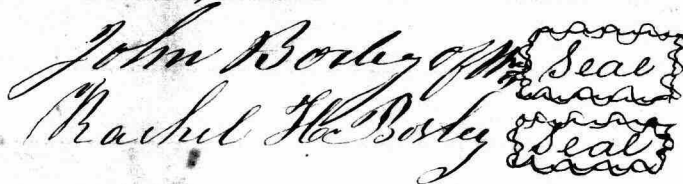 John Bosley of Wm Seal
Rachel H Bosley Seal